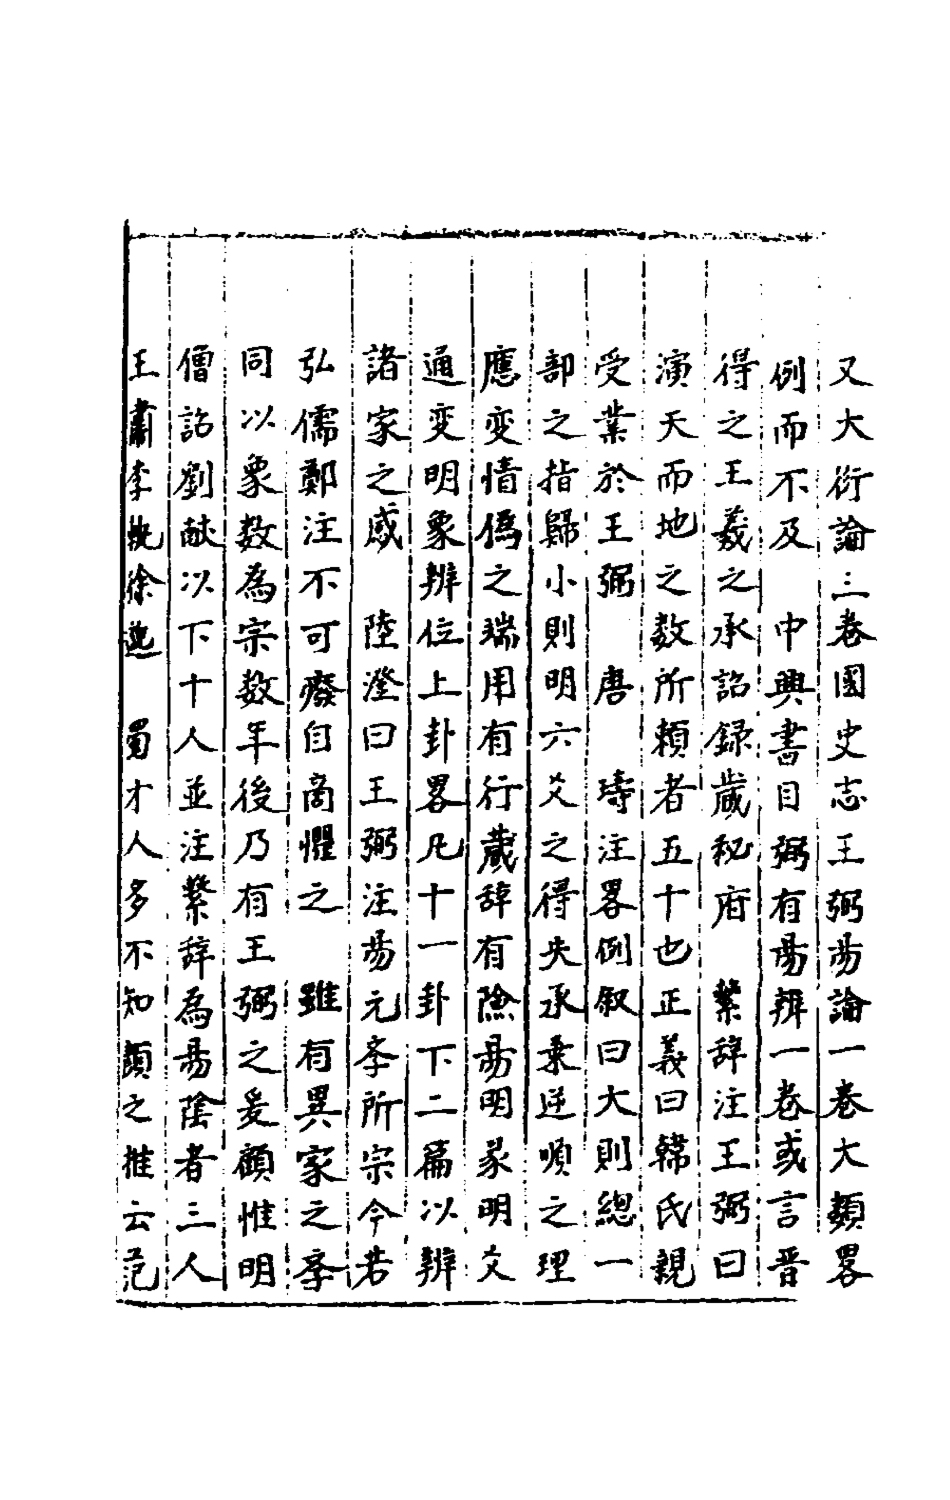 又大衍論三卷國史志王弼昜論一卷大類畧
例而不及　中興書目弼有昜辨一卷或言晉
得之王羲之承詔録藏秘府　繫辞注王弼曰
演天而地之数所頼者五十也正義曰韓氏親
受業於王弼　唐　璹注畧例叙曰大則總一
部之指歸小則明六爻之得失承乗逆順之理
應变情偽之端用有行蔵辞有險昜明彖明爻
通变明象辨位上卦畧凢十一卦下二篇以辨
諸家之惑　陸澄曰王弼注昜元斈所宗今若
弘儒鄭注不可癈自啇懼之　雖有異家之斈
同以象数為宗数年後乃有王弼之爰顧惟明
僧詔劉献以下十人並注繫辞為昜陰者三人
王肅李軌徐邈　蜀才人多不知顔之推云范